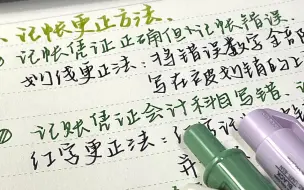 、记帐更正方法、
记帐凭证正确但记帐错误、
划线更正法：将错误数字全部
写在被划销的上
② 记账凭证会计科目写错、
红字更正法：